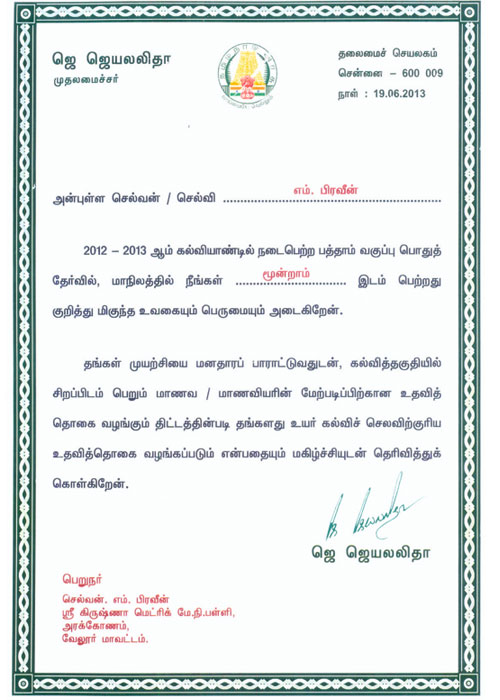 ஜெ ஜெயலலிதா
முதலமைச்சர்
தலைமைச் செயலகம்
சென்னை – 600 009
நாள் : 19.06.2013
அன்புள்ள செல்வன் / செல்வி எம். பிரவீன்
2012 – 2013 ஆம் கல்வியாண்டில் நடைபெற்ற பத்தாம் வகுப்பு பொதுத்
தேர்வில், மாநிலத்தில் நீங்கள் மூன்றாம் இடம் பெற்றது
குறித்து மிகுந்த உவகையும் பெருமையும் அடைகிறேன்.
தங்கள் முயற்சியை மனதாரப் பாராட்டுவதுடன், கல்வித்தகுதியில்
சிறப்பிடம் பெறும் மாணவ / மாணவியரின் மேற்படிப்பிற்கான உதவித்
தொகை வழங்கும் திட்டத்தின்படி தங்களது உயர் கல்விச் செலவிற்குரிய
உதவித்தொகை வழங்கப்படும் என்பதையும் மகிழ்ச்சியுடன் தெரிவித்துக்
கொள்கிறேன்.
ஜெ ஜெயலலிதா
பெறுநர்
செல்வன். எம். பிரவீன்
ஸ்ரீ கிருஷ்ணா மெட்ரிக் மே.நி.பள்ளி,
அரக்கோணம்,
வேலூர் மாவட்டம்.